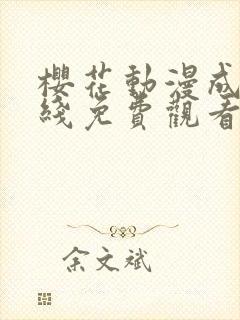 櫻花動漫成
綫免費觀看
余文斌